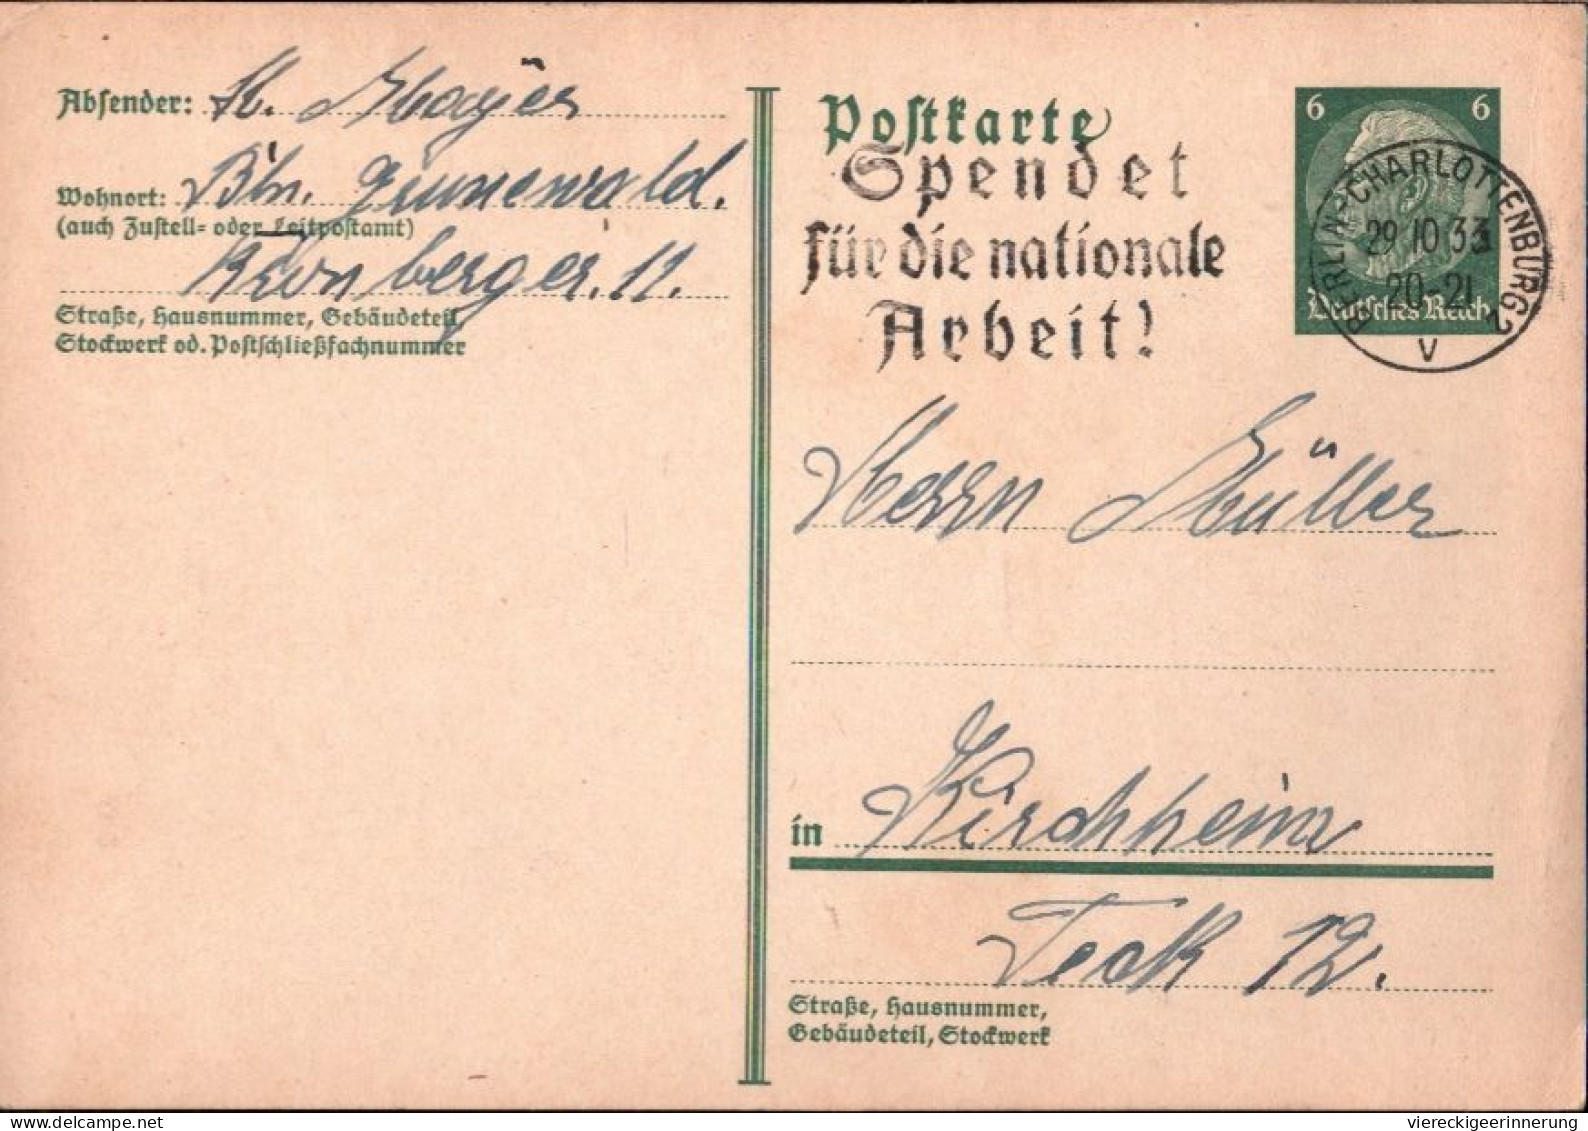 Absender: K. Mayer
Wohnort: Bln. Grunewald.
(auch Zustell- oder Leitpostamt)
Kronbergerstr. 11.
Straße, Hausnummer, Gebäudeteil,
Stockwerk od. Postschließfachnummer
Postkarte
Spendet
für die nationale
Arbeit!
6 6
Deutsches Reich
BERLIN-CHARLOTTENBURG 2
29.10.33
20-21
V
Herrn Müller
in Kirchheim
Teck 12.
Straße, Hausnummer,
Gebäudeteil, Stockwerk
viereckigeerinnerung